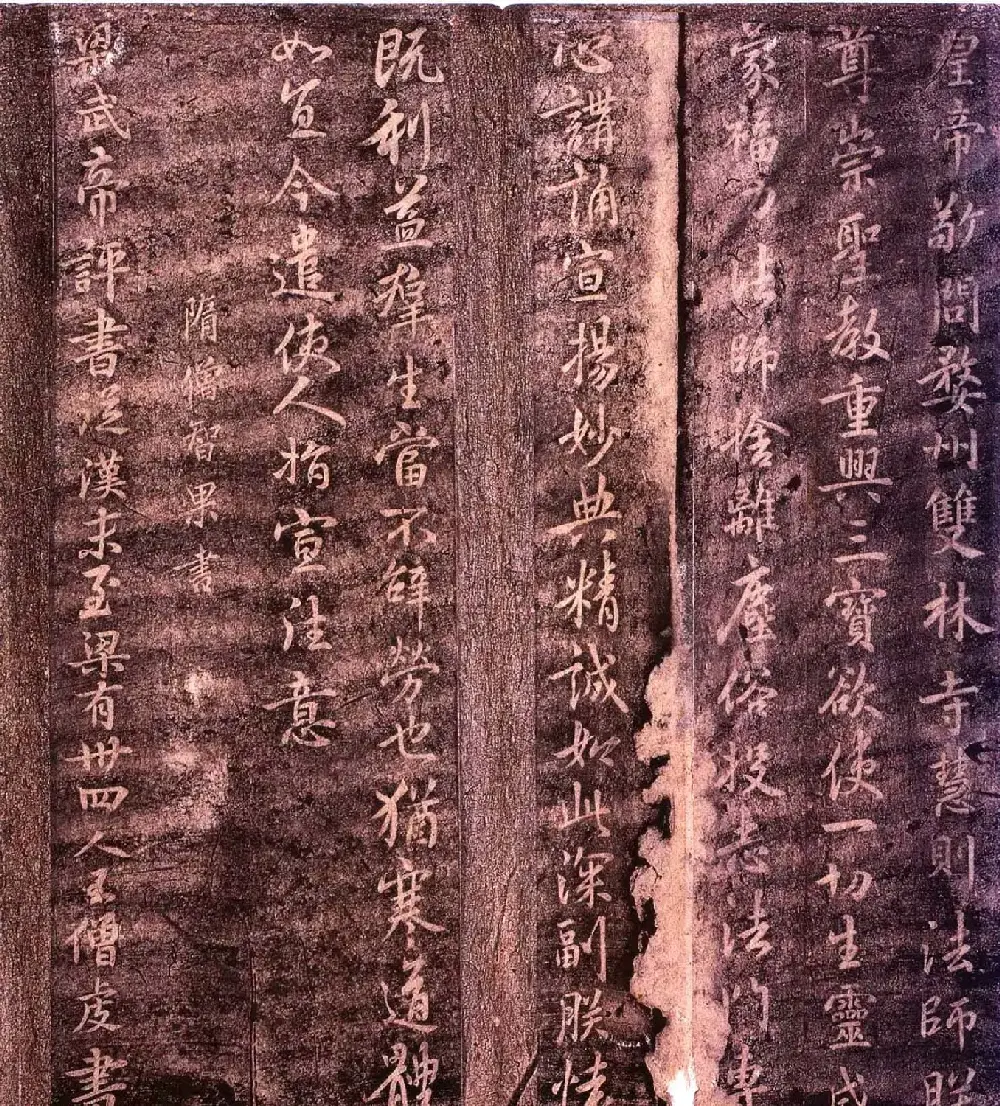 皇帝敬問婺州雙林寺慧則法師朕
尊崇聖教重興三寶欲使一切生靈咸
蒙福力法師捨離塵俗投志法門專
心講誦宣揚妙典精誠如此深副朕懷
既利益羣生當不辭勞也猶寒道體
如宜今遣使人指宣往意
隋僧智果書
梁武帝評書從漢末至梁有卅四人王僧虔書